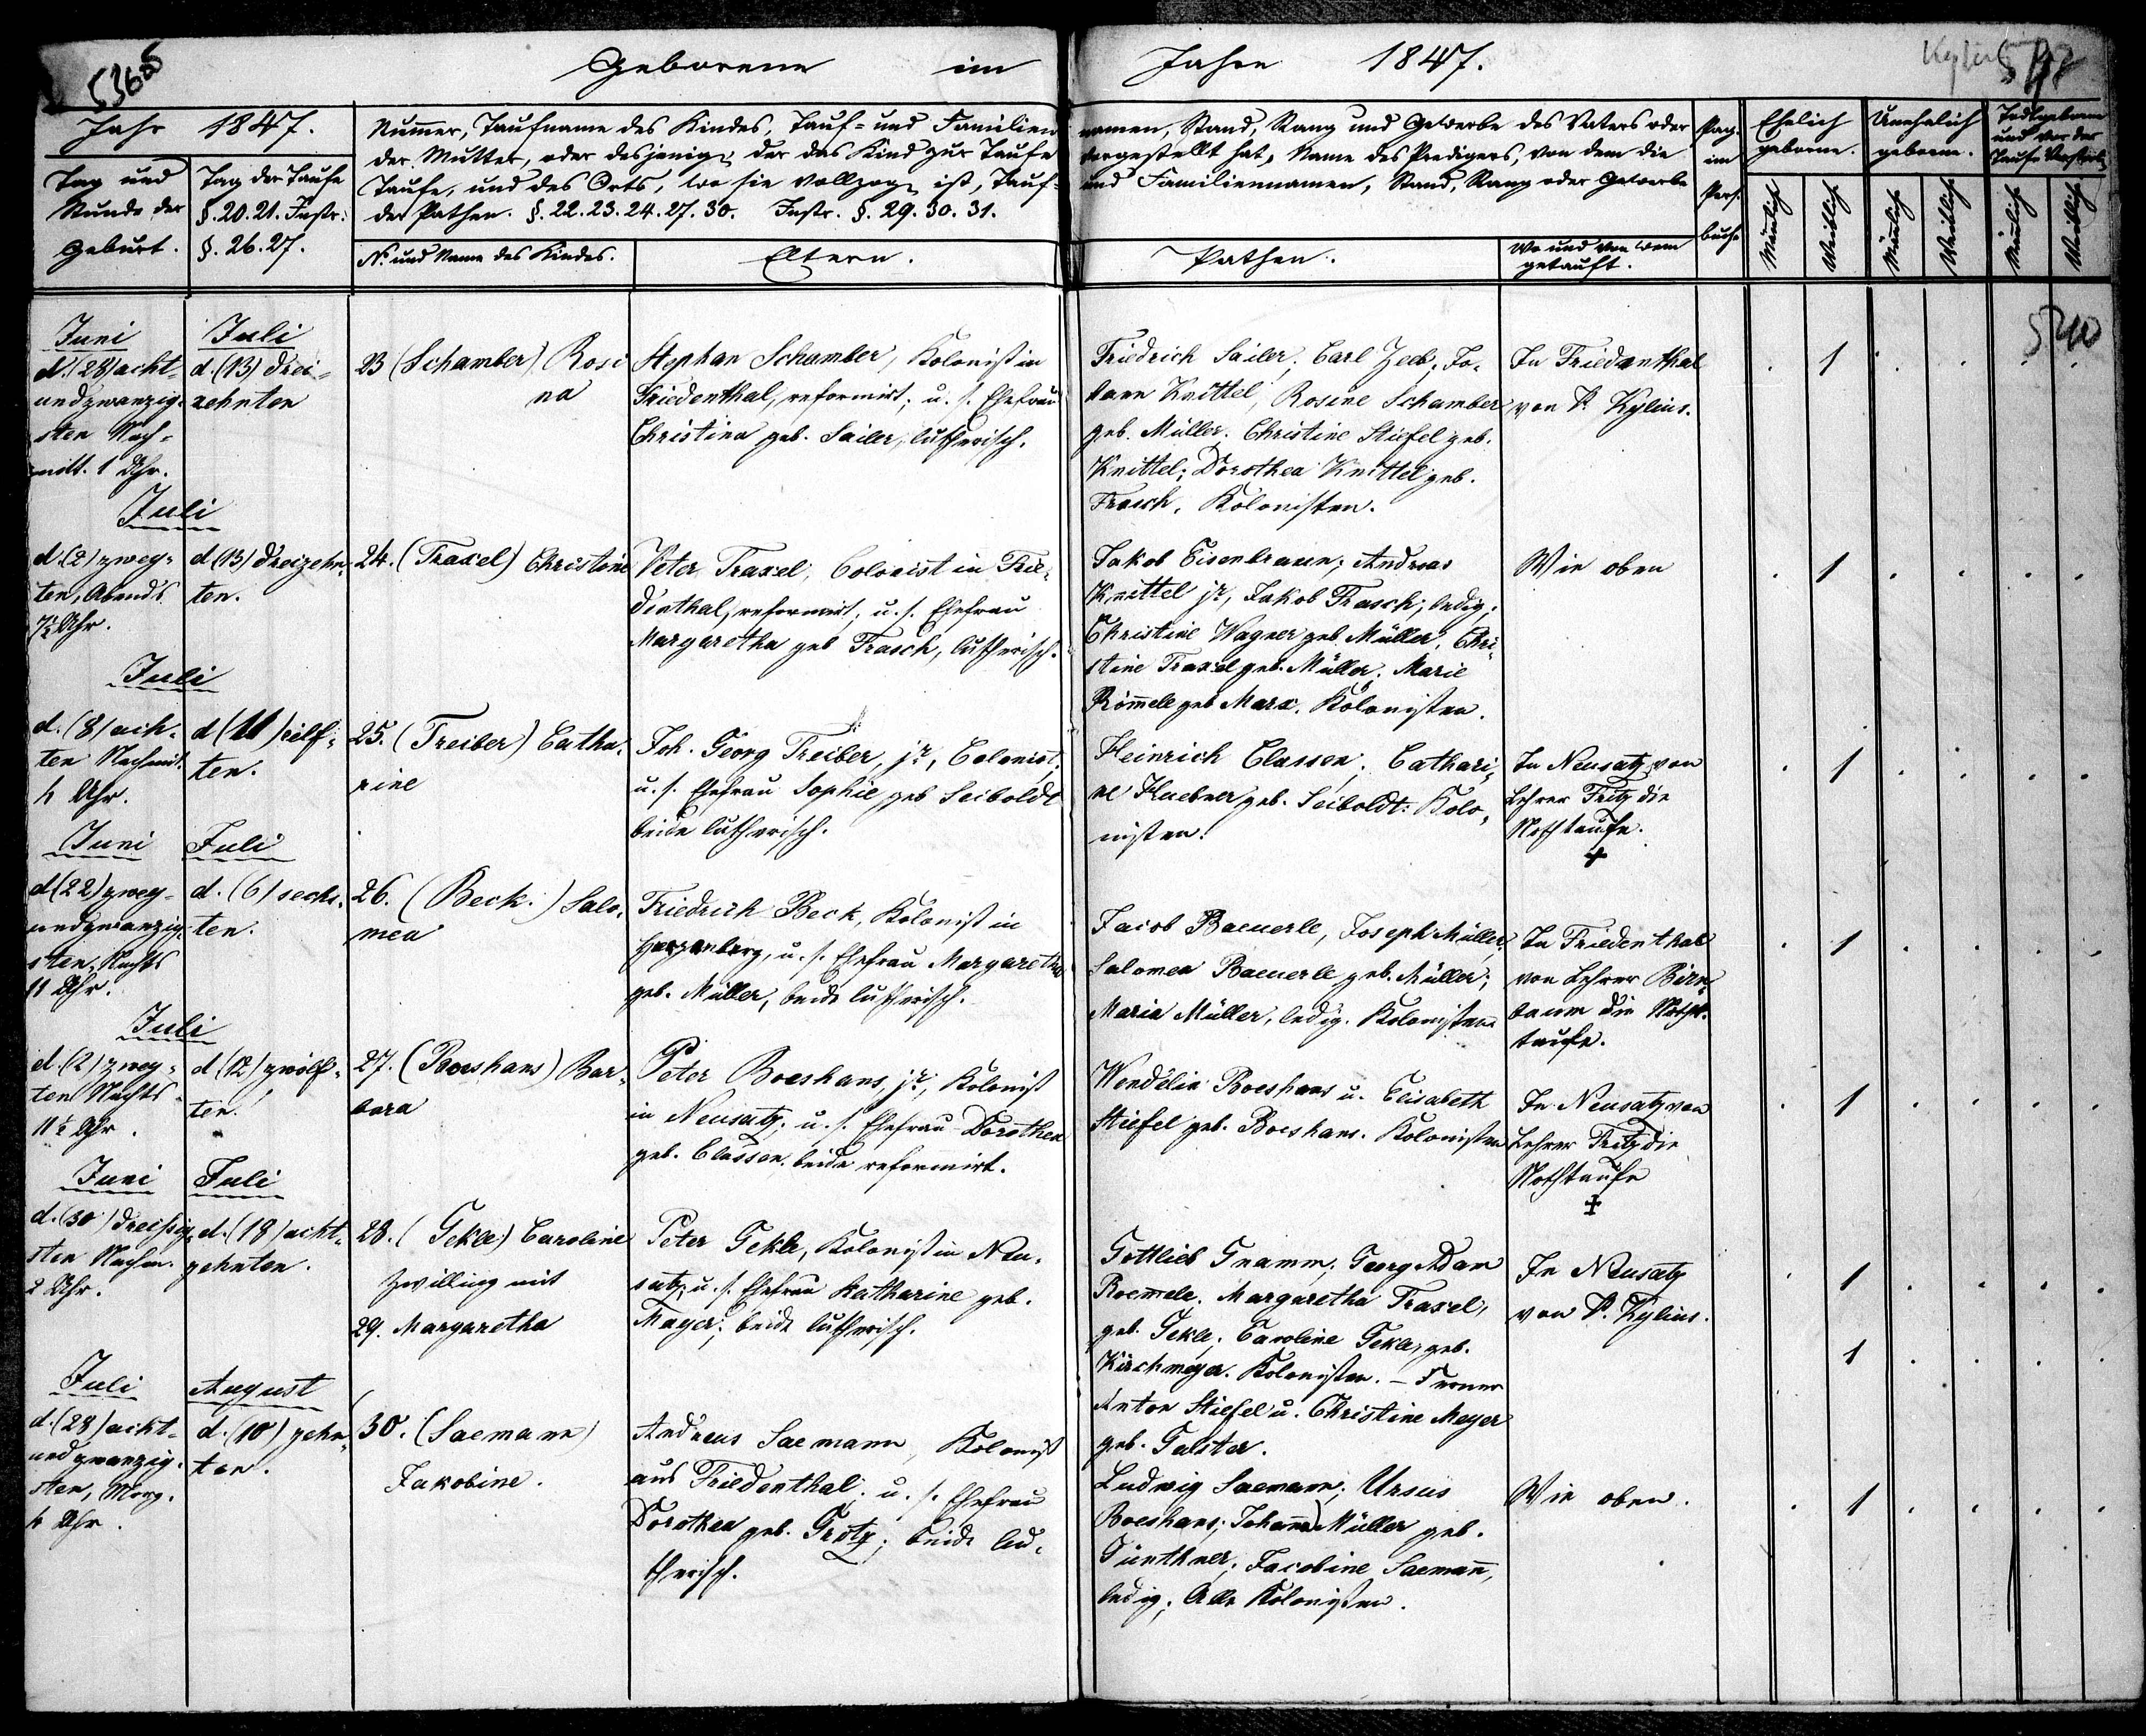 5360b
Geborene im Jahre 1847.
Jahr 1847.
Tag und
Stunde der
Geburt.
Tag der Taufe
§. 20. 21. Instr:
§. 26. 27.
Num̄er, Taufname des Kindes, Tauf- und Familien
der Mutter, oder desjenigen der das Kind zur Taufe
Taufe, und des Orts, wo sie vollzogen ist, Tauf-
der Pathen. §. 22. 23. 24. 27. 30. Instr. §. 29. 30. 31.
No. und Name des Kindes.
Eltern.
namen, Stand, Rang und Gewerbe des Vaters oder
vorgestellt hat, Name des Predigers, von dem die
und Familiennamen, Stand, Rang oder Gewerbe
Pathen.
Wo und von wem
getauft.
Pag.
im
Pers.
buche
Ehelich
geborene.
Unehelich
geborene.
Todtgeborene
und vor der
Taufe Verstorb.
Mänlich
Weiblich
Mänlich
Weiblich
Mänlich
Weiblich
Juni
d. (28) acht-
undzwanzig-
sten Nach-
mitt. 1 Uhr.
Juli
d. (13) drei-
zehnten
23 (Schamber) Rosi
na
Stephan Schamber, Kolonist in
Friedenthal, reformirt, u. s. Ehefrau
Christina geb. Sailer, lutherisch.
Friedrich Sailer, Carl Zeeb, Jo-
hann Knittel, Rosine Schamber
geb. Müller, Christine Stiefel geb.
Knittel; Dorothea Knittel geb.
Frasch, Kolonisten.
In Friedenthal
von P. Kylius.
1
Juli
d. (2) zwey-
ten, Abends
7½ Uhr.
d (13) dreizehn-
ten.
24. (Traxel) Christine
Peter Traxel, Colonist in Frie-
denthal, reformirt, u. s. Ehefrau
Margaretha geb Frasch, lutherisch.
Jakob Eisenbraun; Andreas
Knittel jr, Jakob Frasch, ledig;
Christine Wagner geb Müller, Chri-
stine Traxel geb. Müller. Marie
Röm̄ele geb Marx. Kolonisten.
Wie oben
1
Juli
d. (8) ach-
ten Nachmit.
4 Uhr.
d (11) eilf-
ten.
25. (Treiber) Catha-
rine
Joh. Georg Treiber, jr, Colonist,
u. s. Ehefrau Sophie geb Seiboldt
beide lutherisch.
Heinrich Classen, Cathari-
ne Huebner geb. Seiboldt: Kolo-
nisten.
In Neusatz von
Lehrer Fritz die
Nothtaufe.
+
1
Juni
d (22) zwey-
undzwanzig-
sten, Nachts
11 Uhr.
Juli
d. (6) sechs-
ten.
26. (Beck.) Salo-
mea
Friedrich Beck, Kolonist in
Herzenberg, u. s. Ehefrau Margaretha
geb. Müller, beide lutherisch.
Jacob Baeuerle, Joseph Müller,
Salomea Baeuerle geb. Müller;
Maria Müller, ledig. Kolonisten
In Friedenthal
von Lehrer Birn-
baum die Noth-
taufe.
1
Juli
d. (2) zwey-
ten Nachts
11½ Uhr.
d (12) zwölf-
ten.
27. (Boeshans) Bar-
bara
Peter Boeshans, jr; Kolonist
in Neusatz, u. s. Ehefrau Dorothea
geb. Classen, beide reformirt.
Wendelin Boeshans u. Elisabeth
Stiefel geb. Boeshans. Kolonisten
In Neusatz von
Lehrer Fritz die
Nothtaufe
+
1
Juni
d. (30) dreißig-
sten Nachm.
2 Uhr.
Juli
d. (18) acht-
zehnten.
28. (Jekle) Caroline
Zwilling mit
29. Margaretha
Peter Jekle, Kolonist in Neu-
satz, u. s. Ehefrau Katharine geb.
Mayer; beide lutherisch.
Gottlieb Gramm, Georg Adam
Roemele. Margaretha Traxel,
geb. Jekle; Caroline Jekle, geb.
Kirchmeyer. Kolonisten. – Ferner
Anton Stiefel u. Christine Meyer
geb. Galster.
In Neusatz
von P. Kylius.
1
1
Juli
d. (28) acht-
undzwanzig-
sten, Morg.
4 Uhr.
August
d. (10) zehn-
ten.
30. (Saemann)
Jakobine.
Andreas Saemann, Kolonist
aus Friedenthal, u. s. Ehefrau
Dorothea geb. Grötz; beide lu-
therisch.
Ludwig Saemann, Ursus
Boeshans; Johanna Müller geb.
Günthner, Jacobine Saemañ,
ledig; Alle Kolonisten.
Wie oben.
1